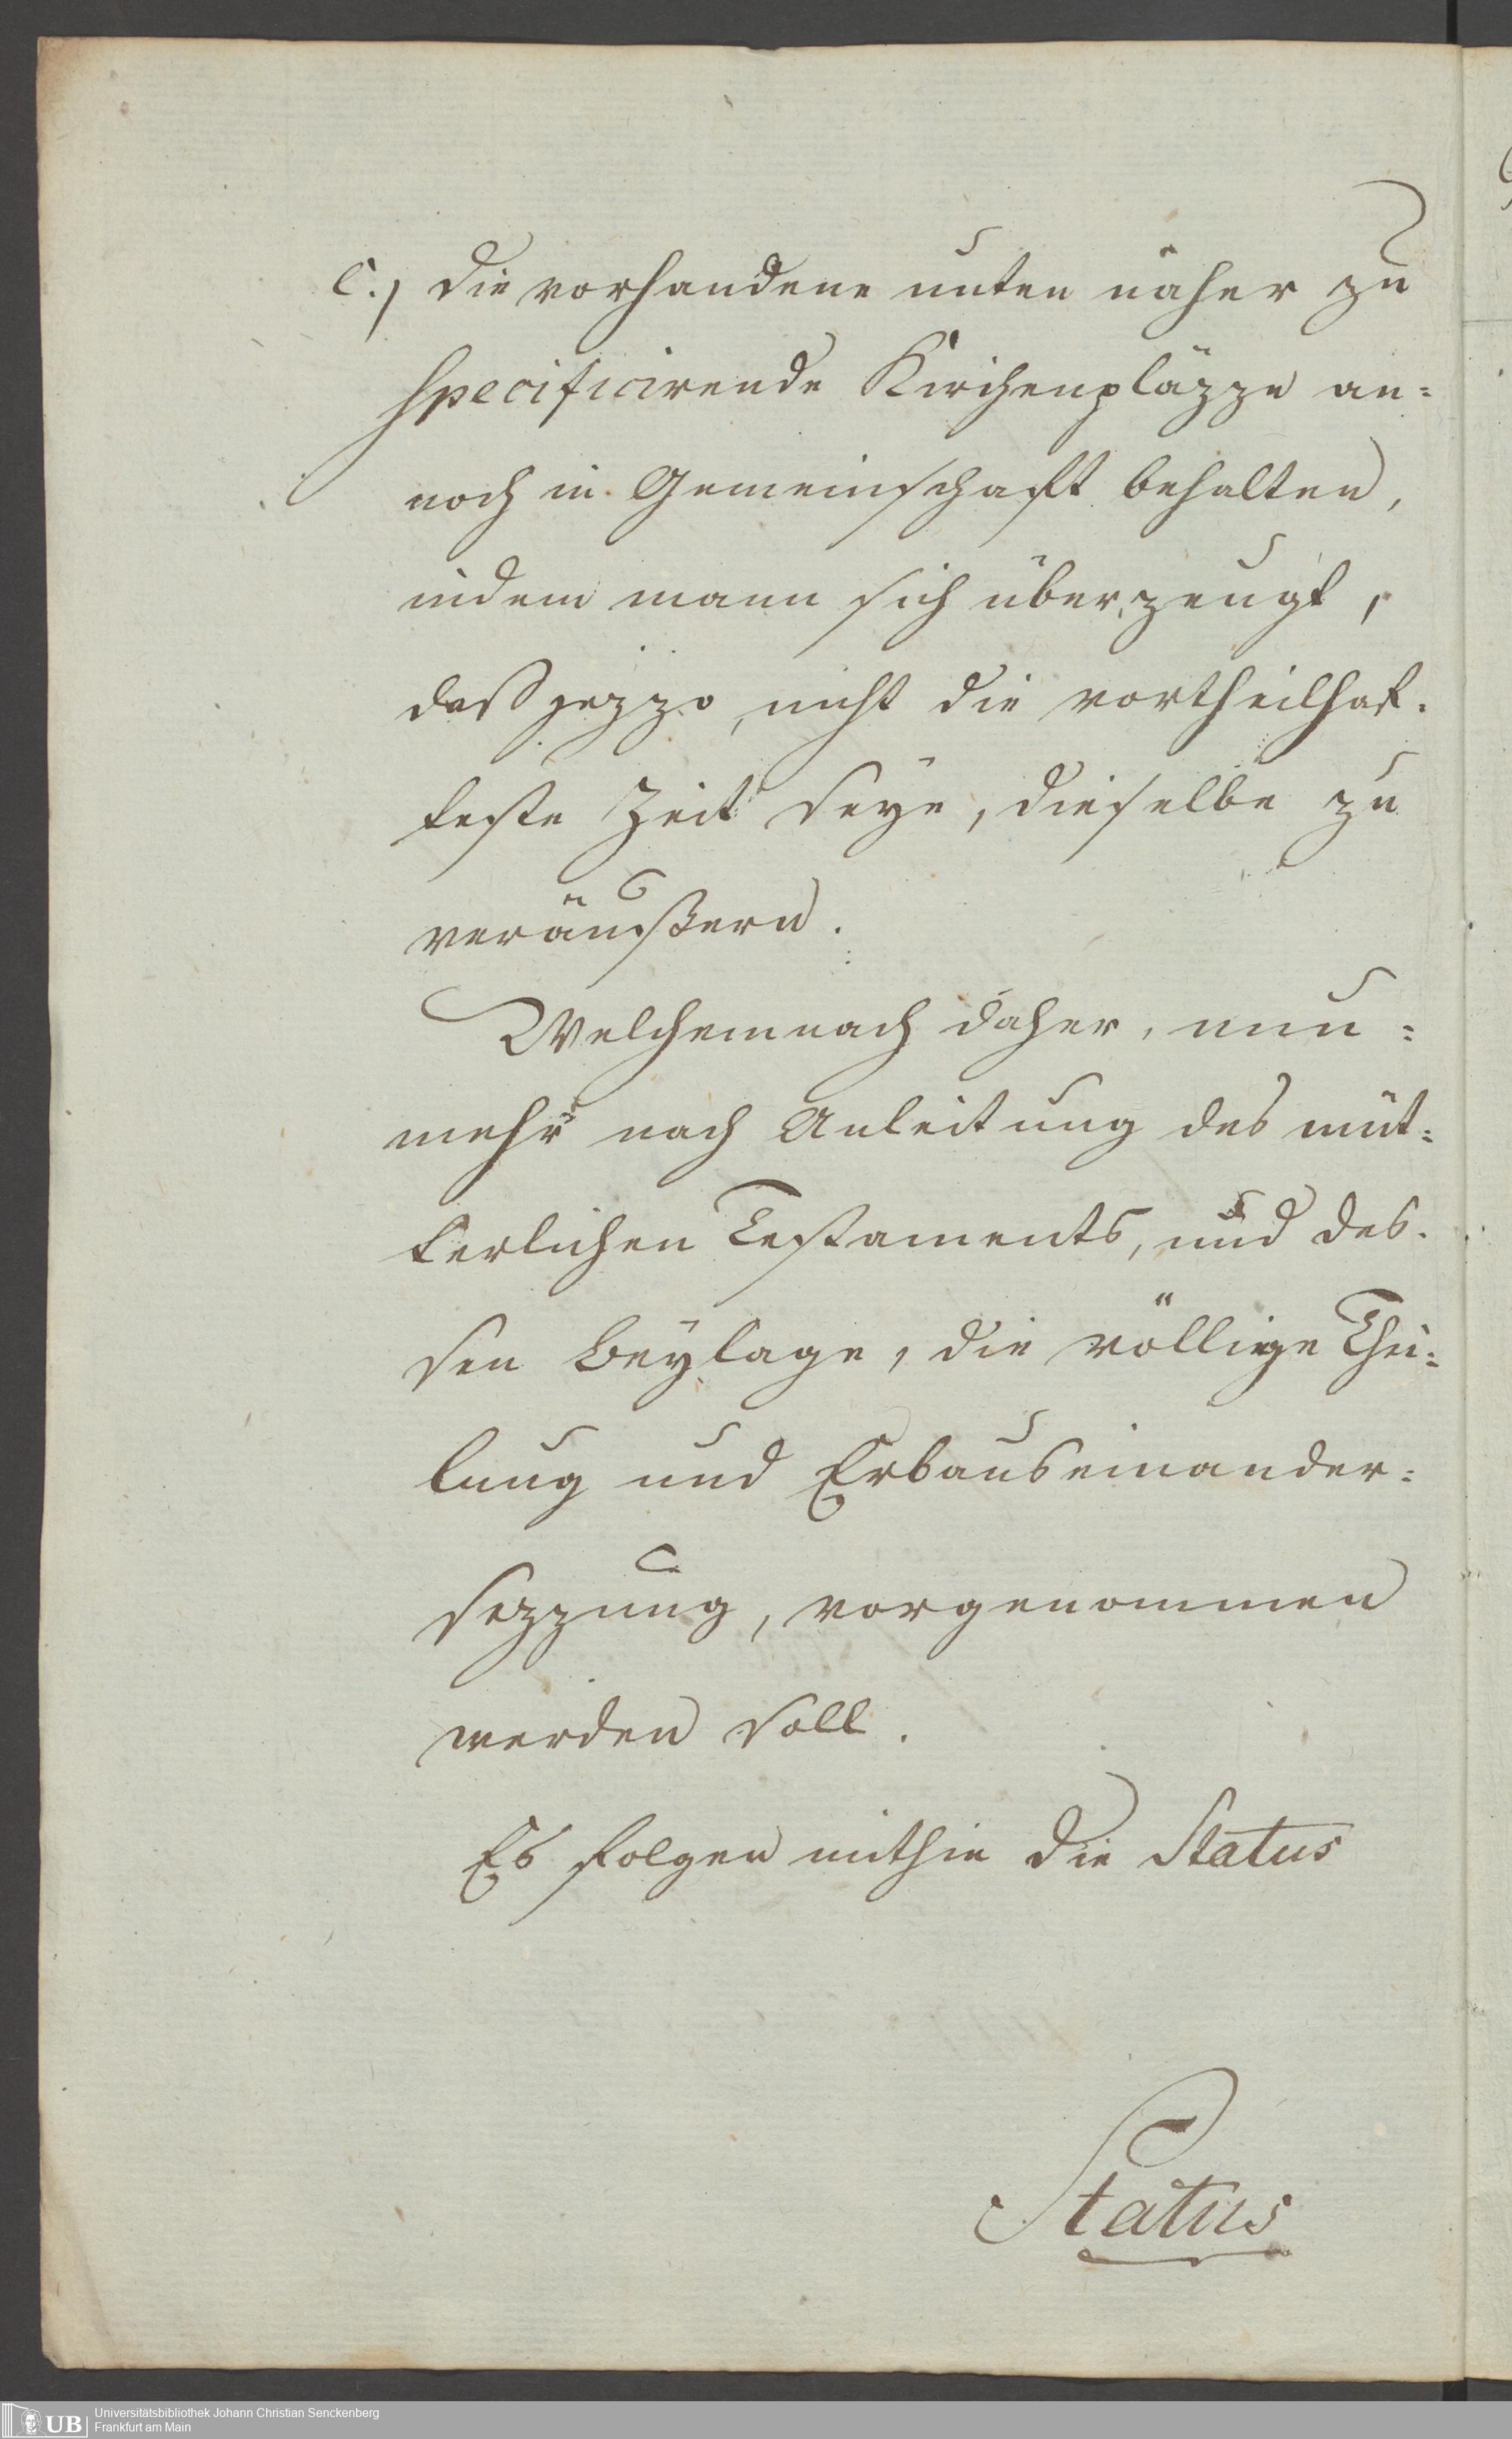 c.) die vorhandene unten näher zu
specificirende Kirchenpläzze an=
noch in Gemeinschaft behalten,
indem mann sich überzeugt,
daß jezzo, nicht die vortheilhaf.
teste Zeit seye, dieselbe zu
veräußern.
Welchemnach daher, nun=
mehr nach Anleitung des müt=
terlichen Testaments, und des.
sen Beylage, die völlige Thei=
lung und Erbauseinander=
sezzung, vorgenommen
werden soll.
Es folgen mithin die Status
Status
UB
Universitätsbibliothek Johann Christian Senckenberg
Frankfurt am Main